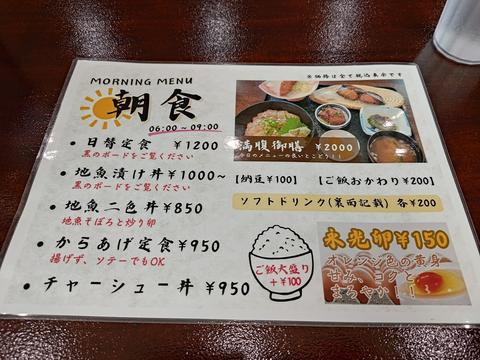 MORNING MENU
※価格は全て税込表示です
朝食
06:00~09:00
・日替定食 ¥1200
黒のボードをご覧ください
・地魚漬け丼¥1000~
黒のボードをご覧ください
・地魚二色丼¥850
地魚そぼろと炒り卵
・からあげ定食¥950
揚げず、ソテーでもOK
・チャーシュー丼 ¥950
満腹御膳 ¥2000
今日のメニューの良いとこどり!!
【納豆¥100】 【ご飯おかわり¥200】
ソフトドリンク(裏面記載) 各¥200
ご飯大盛り
+¥100
永光卵¥150
オレンジ色の黄身
甘み、コクと
まろやか!!